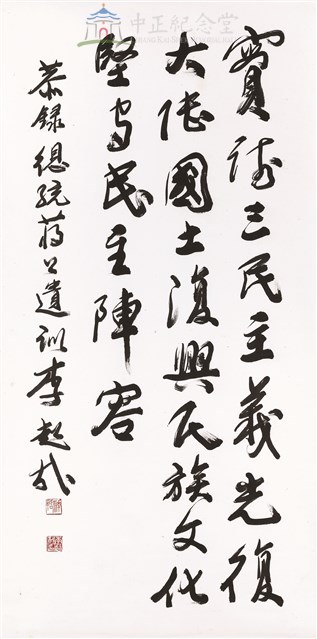 中正紀念堂
實踐三民主義光復
大陸國土復興民族文化
堅守民主陣容
恭錄總統蔣公遺訓李超哉